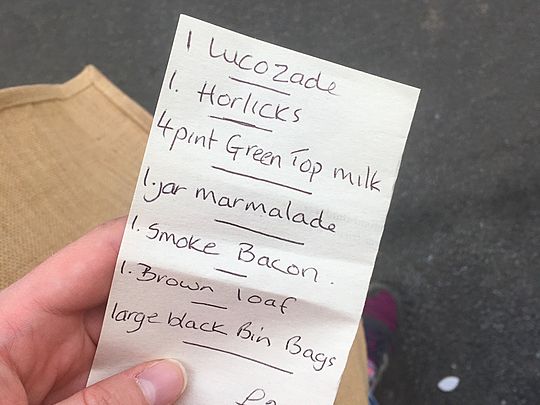 1 Lucozade
1. Horlicks
4pint Green Top milk
1.jar marmalade
1. Smoke Bacon.
1. Brown loaf
large black Bin Bags